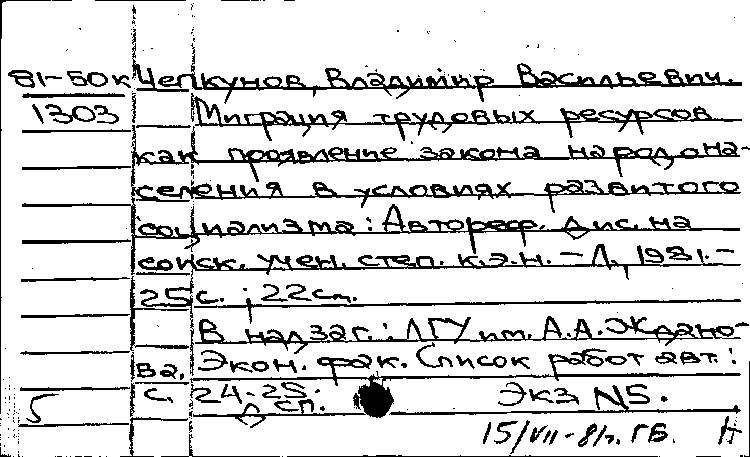 81-50к Чепкунов, Владимир Васильевич.
1303 Миграция трудовых ресурсов
как проявление закона народона-
селения в условиях развитого
социализма: Автореф. дис. на
соиск. учен. степ. к.э.н. - Л., 1981.-
25с.; 22см.
В надзаг.: ЛГУ им. А.А.Ждано-
ва. Экон. фак. Список работ авт.:
с. 24-25.
5 Л сп. Экз N5.
15/VII-81г. ГБ. Н